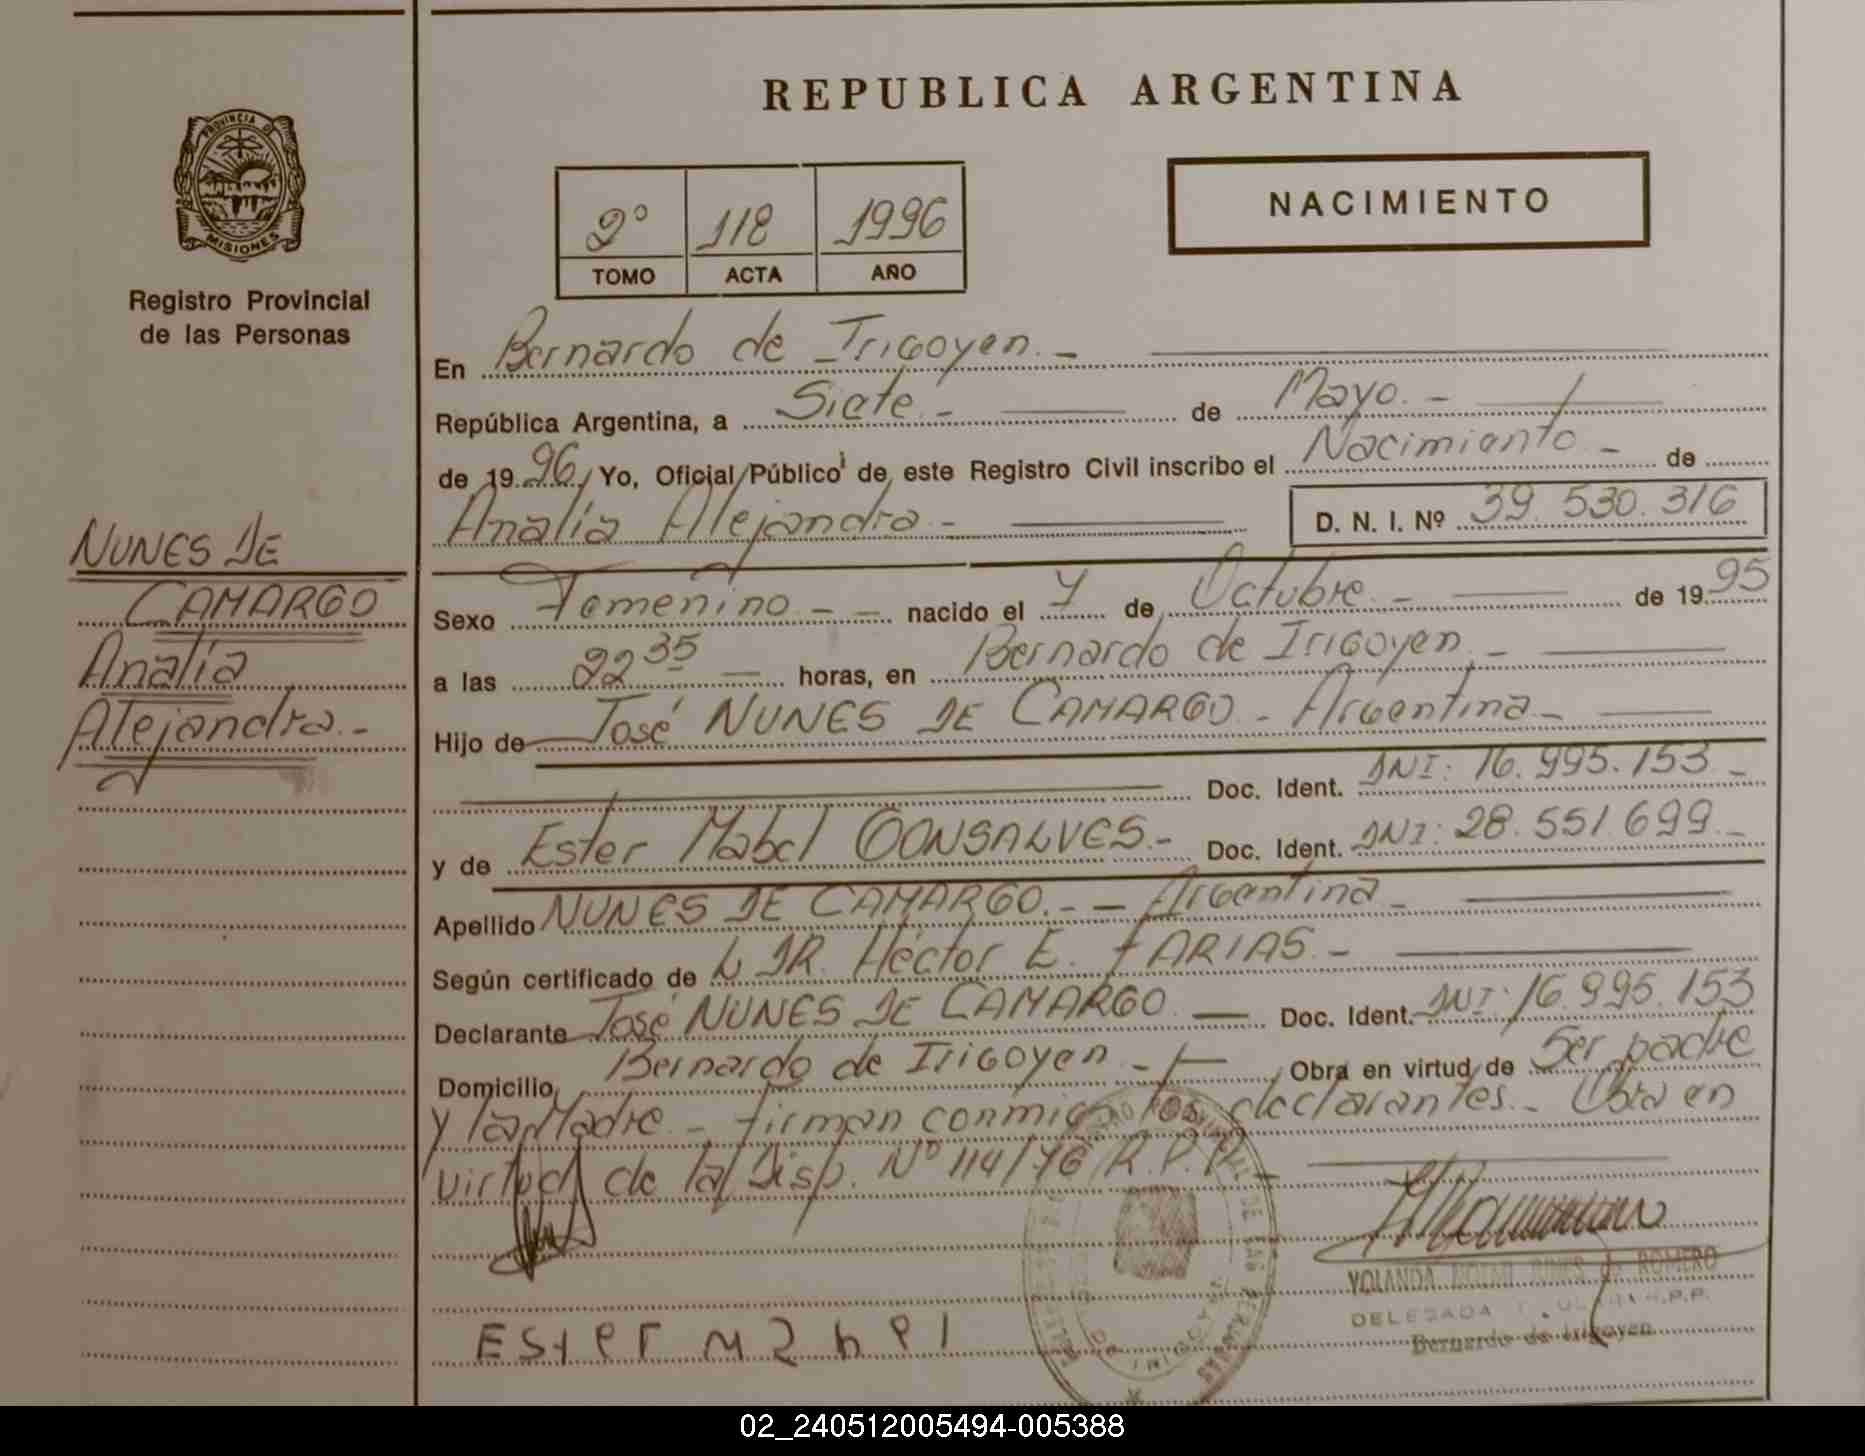 REPUBLICA ARGENTINA
PROVINCIA DE
MISIONES
Registro Provincial
de las Personas
2º 118 1996
TOMO ACTA AÑO
NACIMIENTO
En Bernardo de Irigoyen.-
República Argentina, a Siete.- de Mayo.-
de 1996, Yo, Oficial Público de este Registro Civil inscribo el Nacimiento - de
Analía Alejandra.- D. N. I. Nº 39.530.316
NUNES DE
CAMARGO
Analía
Alejandra.-
Sexo Femenino - - nacido el 7 de Octubre.- de 1995
a las 22 35 horas, en Bernardo de Irigoyen,-
Hijo de José NUNES DE CAMARGO - Argentina -
Doc. Ident. DNI: 16.995.153 -
y de Ester Mabel GONSALVES.- Doc. Ident. DNI: 28.551.699.-
Apellido NUNES DE CAMARGO.- - Argentina -
Según certificado de DR. Héctor E. FARIAS.-
Declarante José NUNES DE CAMARGO Doc. Ident. DNI: 16.995.153
Domicilio Bernardo de Irigoyen.- Obra en virtud de Ser padre
y la Madre - firman conmigo los declarantes.- Obra en
virtud de la Disp. Nº 114/76 R.P.P. -
YOLANDA de ROMERO
DELEGADA R.P.P.
Bernardo de Irigoyen
Ester Mabel
02_240512005494-005388